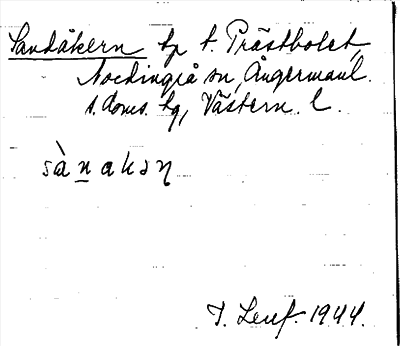 Sandåkern hp t. Prästbolet,
Nordingrå sn, Ångermanl.
s. doms. hg, Västern. l.
sànakən
T. Lenf. 1944.